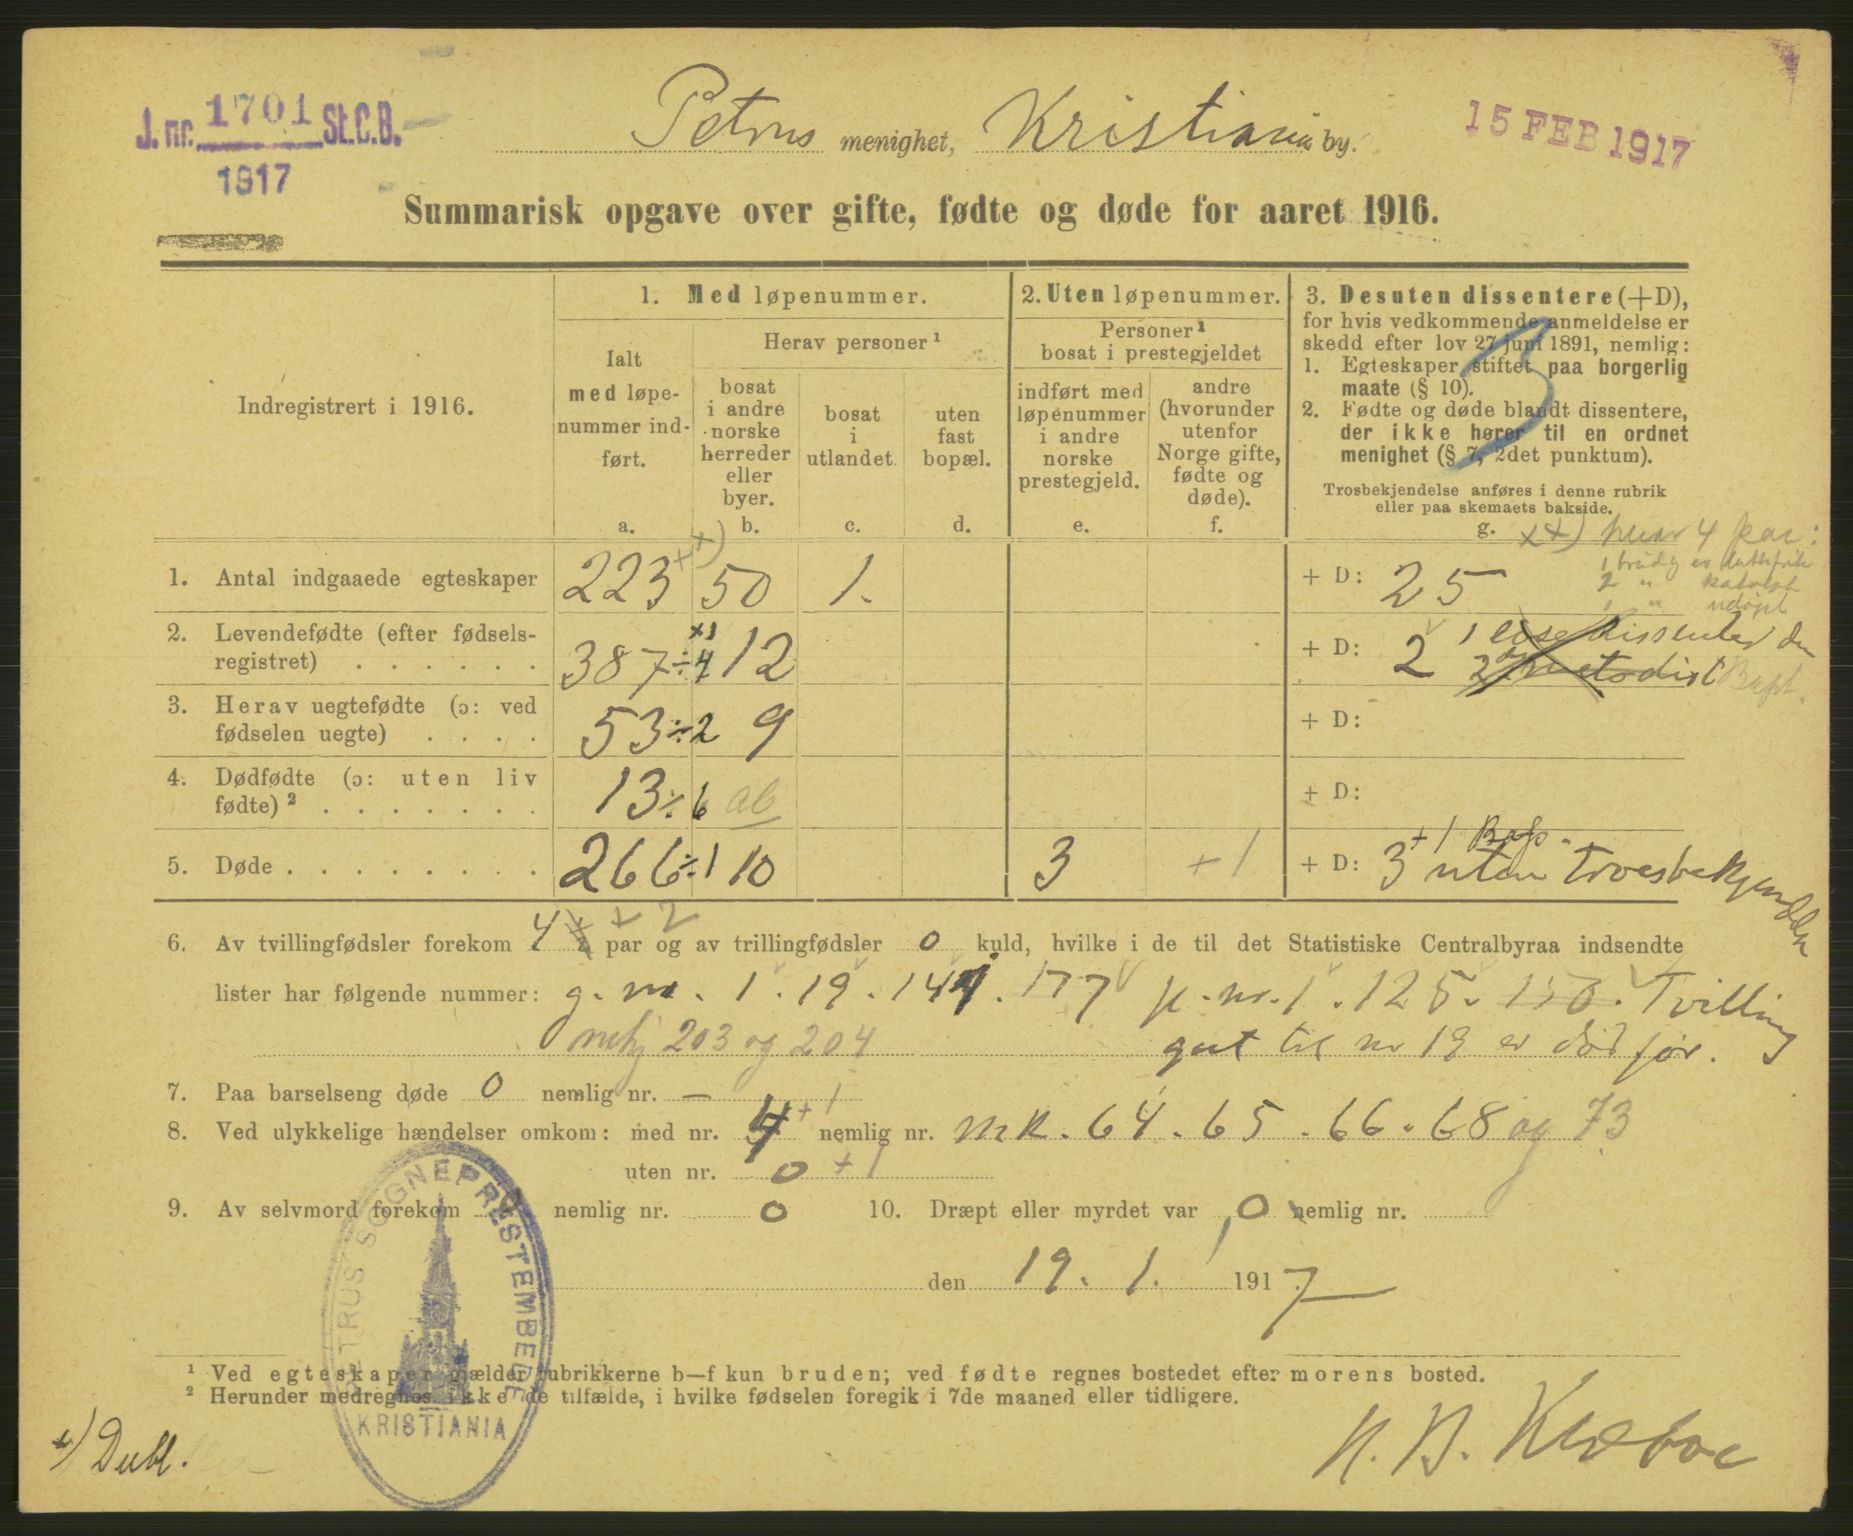 J. nr. 1701 St.C.B.
1917
Petrus menighet, Kristiania by.
15 FEB 1917
Summarisk opgave over gifte, fødte og døde for aaret 1916.
Indregistrert i 1916.
1. Med løpenummer.
Ialt
med løpe-
nummer ind-
ført.
a.
Herav personer ¹
bosat
i andre
norske
herreder
eller
byer.
b.
bosat
i
utlandet.
c.
uten
fast
bopæl.
d.
2. Uten løpenummer.
Personer ¹
bosat i prestegjeldet
indført med
løpenummer
i andre
norske
prestegjeld.
e.
andre
(hvorunder
utenfor
Norge gifte,
fødte og
døde).
f.
3. Desuten dissentere (+D),
for hvis vedkommende anmeldelse er
skedd efter lov 27 juni 1891, nemlig:
1. Egteskaper stiftet paa borgerlig
maate (§ 10).
2. Fødte og døde blandt dissentere,
der ikke hører til en ordnet
menighet (§ 7, 2det punktum).
Trosbekjendelse anføres i denne rubrik
eller paa skemaets bakside.
g.
3
xx) herav 4 par:
1. Antal indgaaede egteskaper 223 xx) 50 1. + D: 25
2 " katolsk
1 " udøpt
2. Levendefødte (efter fødsels-
registret) 387 ÷4 x) 12 + D: 2 1 dissenter
2 metodist Bapt.
3. Herav uegtefødte (ɔ: ved
fødselen uegte) 53 ÷2 9 + D:
4. Dødfødte (ɔ: uten liv
fødte) ² 13 ÷6 ab + D:
5. Døde 266 ÷1 10 3 +1 + D: 3 +1 Bap. uten Troesbekjendelse
6. Av tvillingfødsler forekom 4 + 2 par og av trillingfødsler 0 kuld, hvilke i de til det Statistiske Centralbyraa indsendte
lister har følgende nummer: g. nr. 1. 19. 144. 177 p. nr. 1. 125. 150. Tvilling
203 og 204 gut til nr 19 er død før.
7. Paa barselseng døde 0 nemlig nr. —
8. Ved ulykkelige hændelser omkom: med nr. 4 +1 nemlig nr. MK. 64. 65. 66. 68 og 73
uten nr. 0 +1
9. Av selvmord forekom 0 nemlig nr. 0 10. Dræpt eller myrdet var 0 nemlig nr.
den 19. 1. 1917
PETRUS SOGNEPRESTEMBEDE
KRISTIANIA
¹ Ved egteskaper gjælder rubrikkerne b—f kun bruden; ved fødte regnes bostedet efter morens bosted.
² Herunder medregnes ikke de tilfælde, i hvilke fødselen foregik i 7de maaned eller tidligere.
x) Dubl.